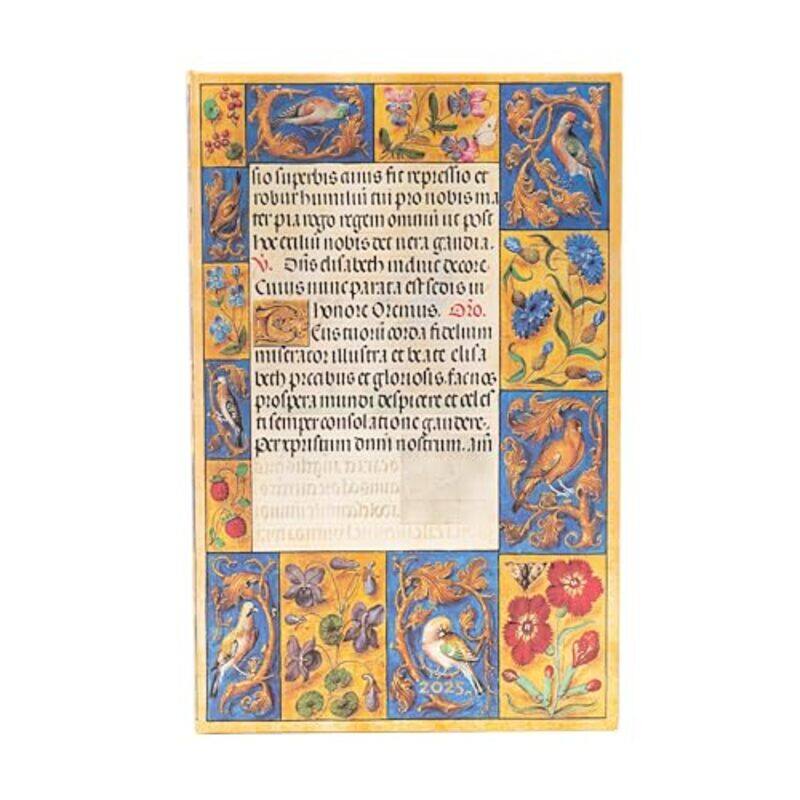 sio superbis cuius fit repressio et
robur humiliū tu pro nobis ma
ter pia rogo regem omniū ut post
hoc exiliū nobis det vera gaudia.
V. Dñs elisabeth induit decore.
Cuius nunc parata est sedis in
honore Oremus. Orō.
Deus tuorū corda fidelium
miserator illustra et beate elisa
beth precibus et gloriosis fac nos
prospera mundi despicere et celes
ti semper consolatione gaudere.
Per xpristum dnm nostrum. am̄
2025